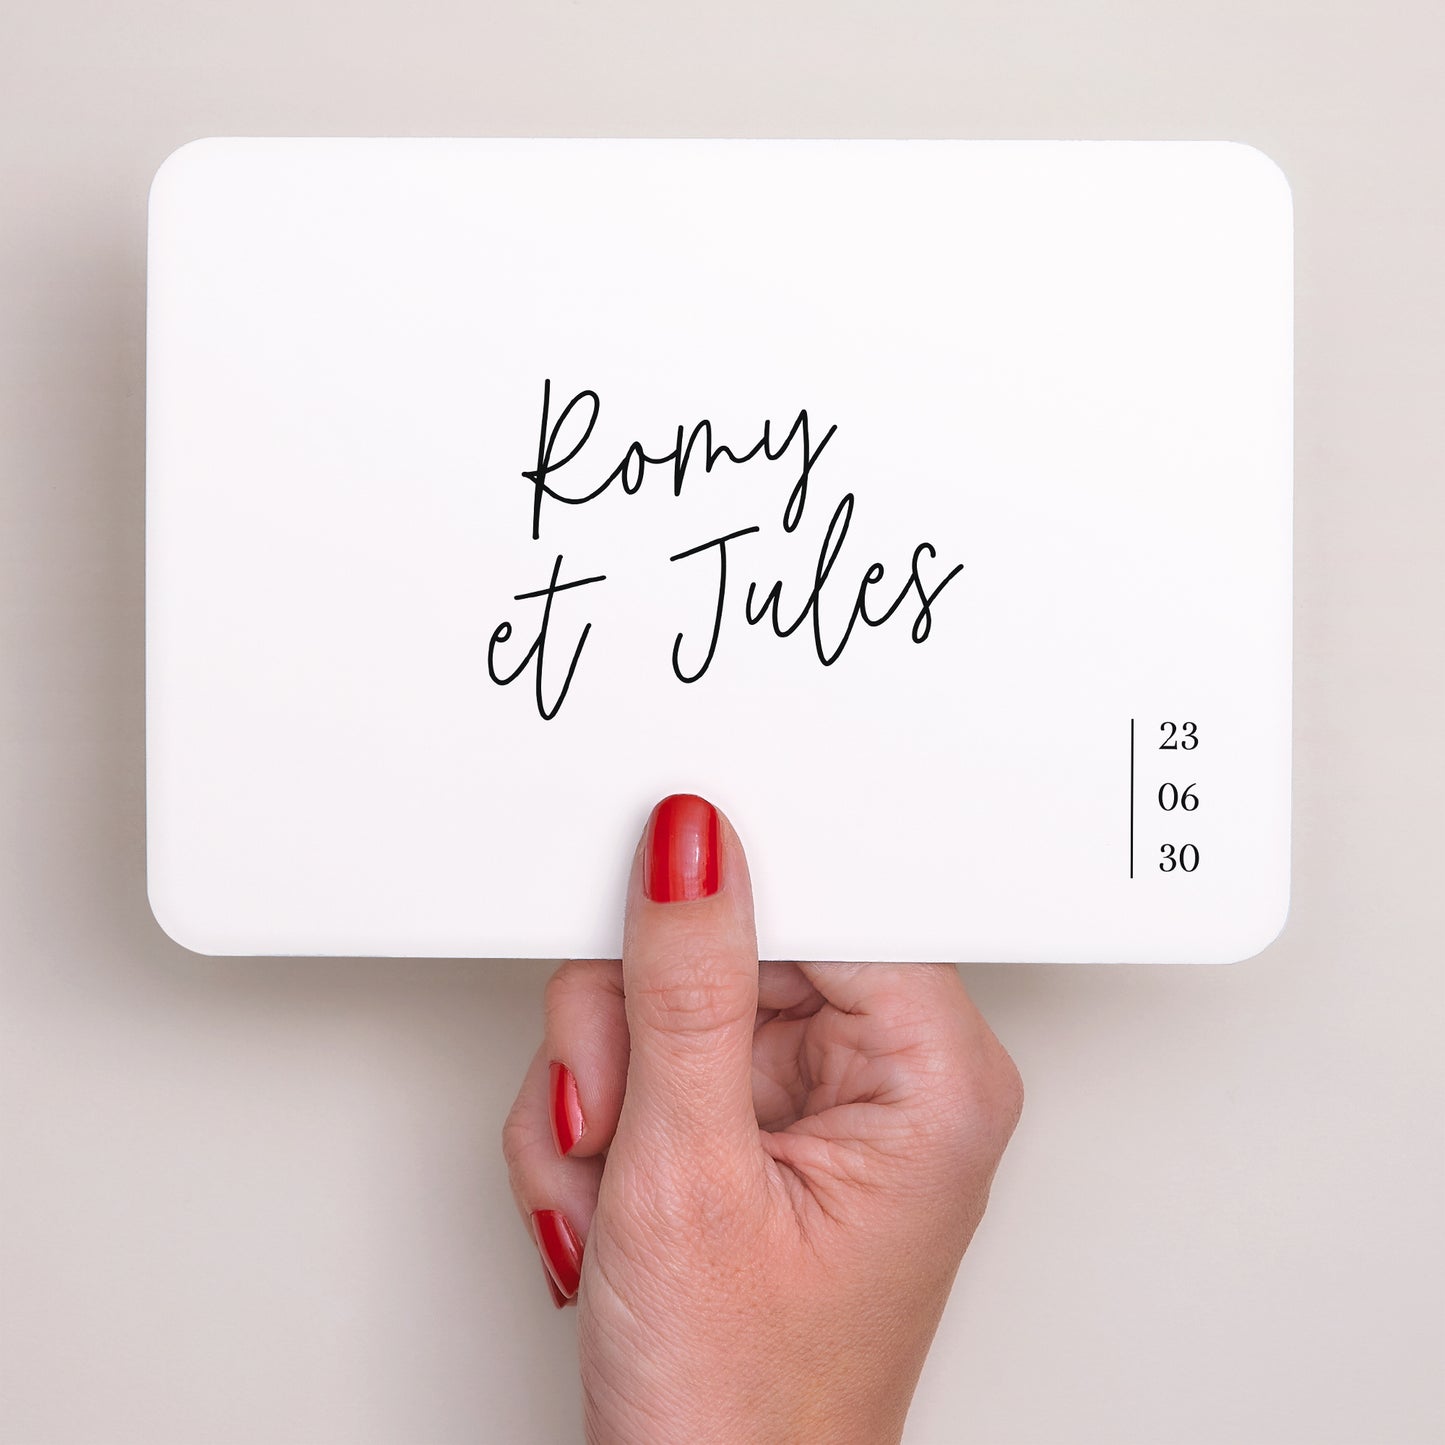 Romy
et Jules
23
06
30